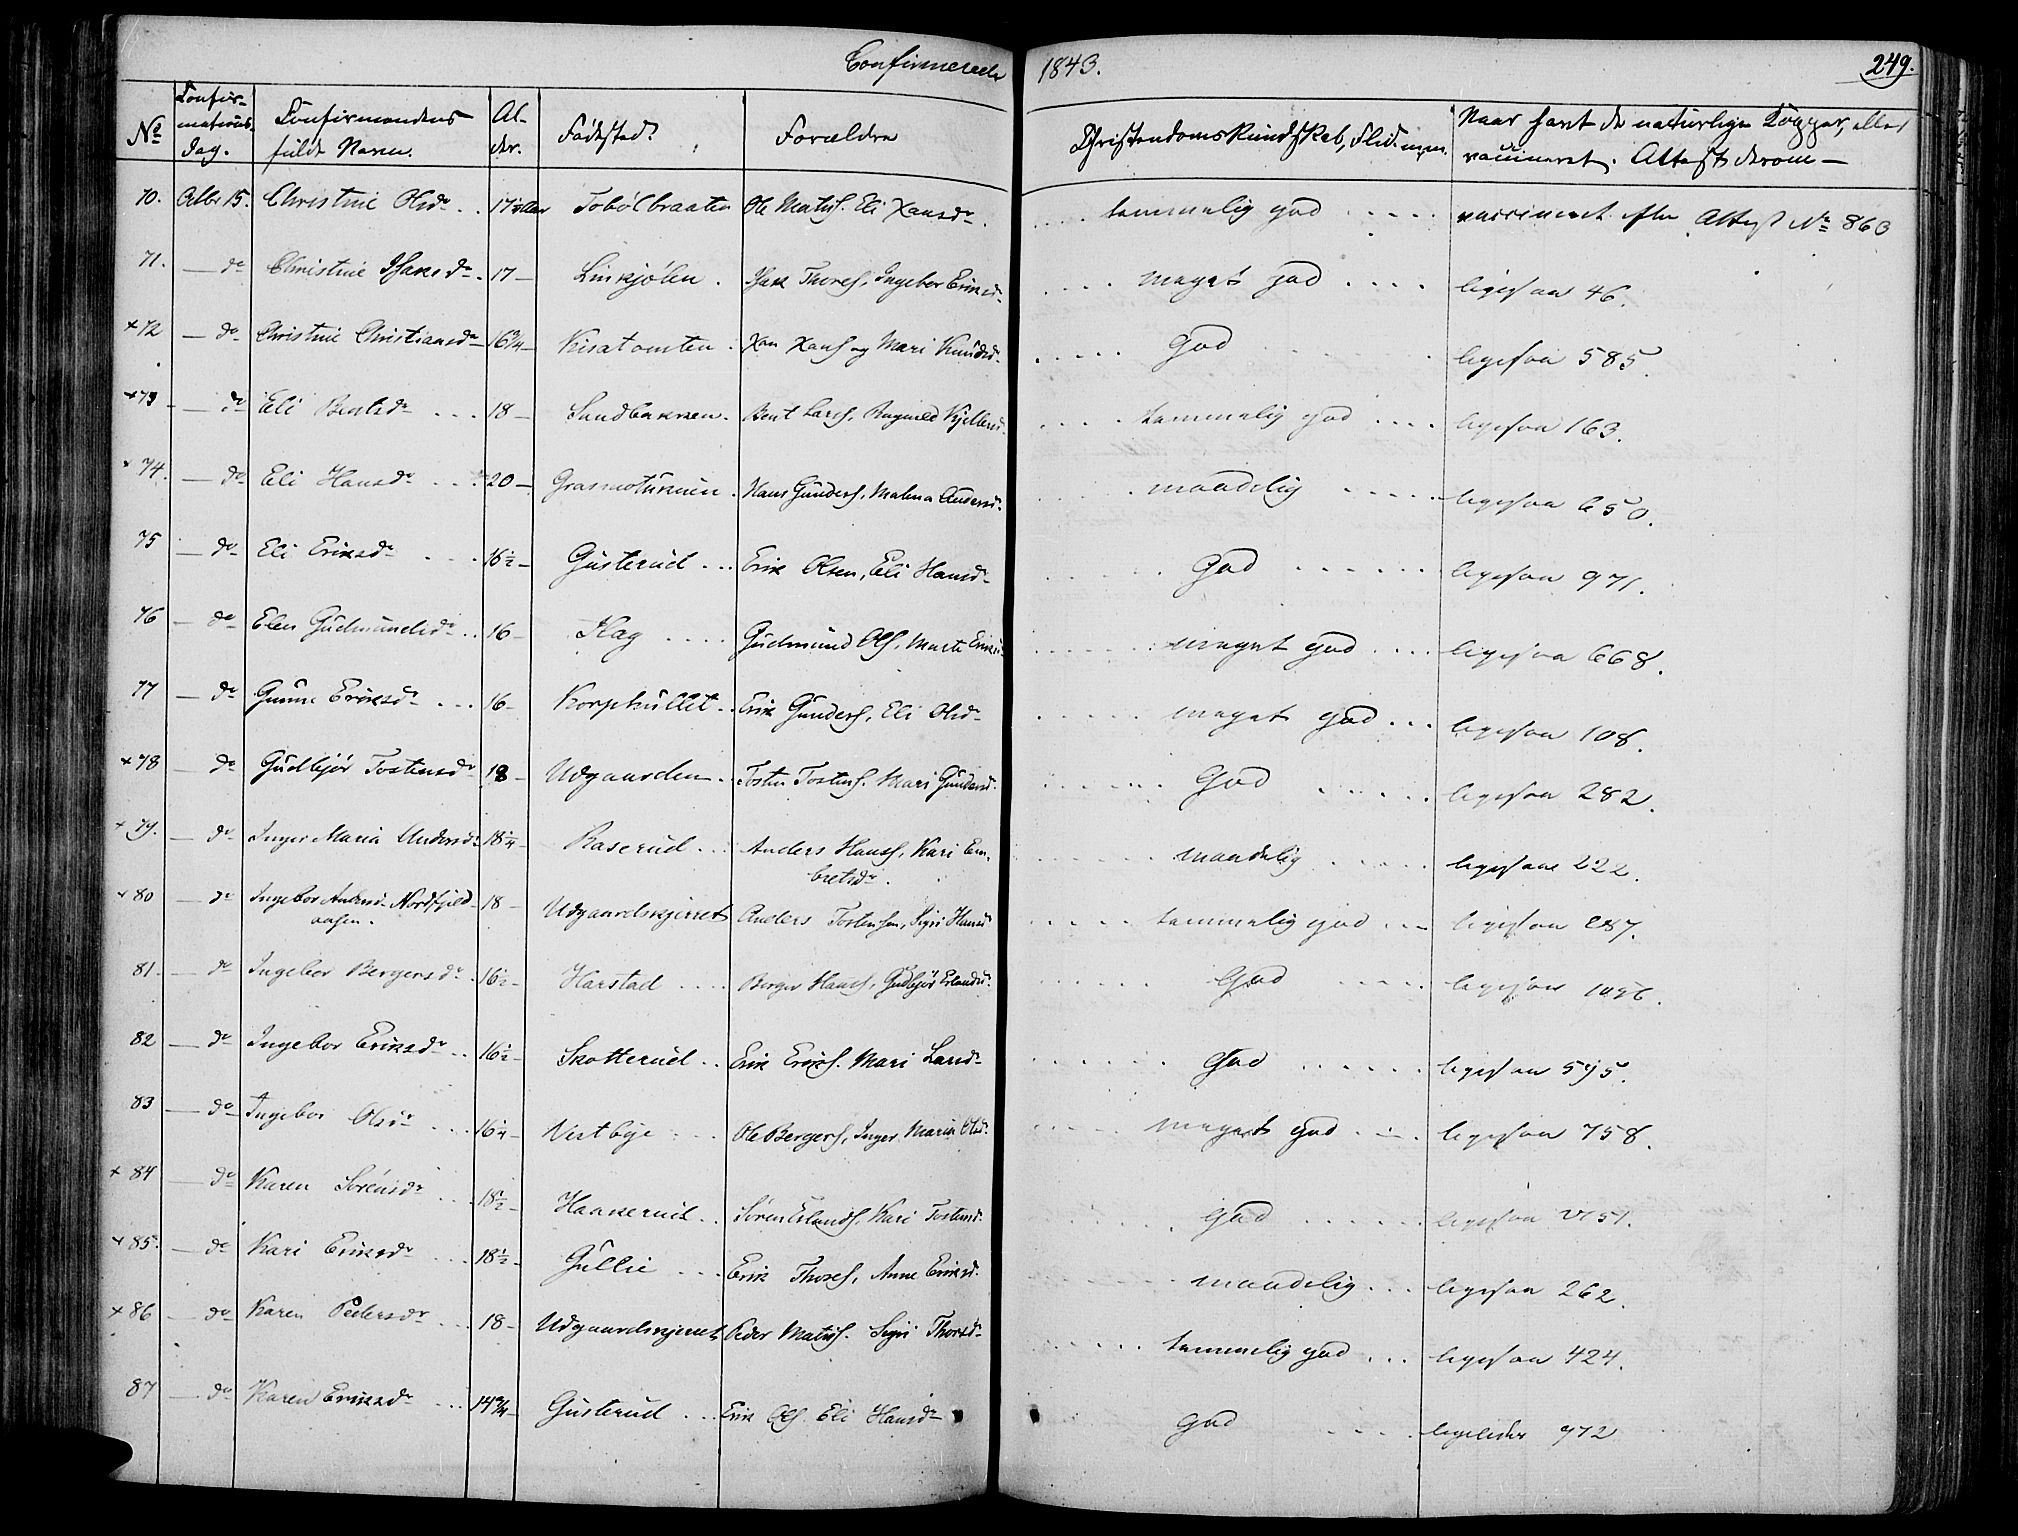 Confirmerede 1843. 249.
No Confirmations Dag. Confirmandens fulde Navn. Alder. Fødested. Forældre Christendoms Kundskab, Flid m.m. Naar havt de naturlige Kopper, eller vaccineret. Attest derom —
70. Octbr 15. Christine Olsdr . . 17 Tobølbraaten Ole Mats. Eli Hansdr . . . . temmelig god . . . . . vaccineret efter Attest No 860
71. — do Christine Isaksdr . 17 — Linkjølen . Isak Thores. Ingebor Eriksd . . . . meget god . . . . ligesaa 46.
+72 — do Christine Christiansdr 16 3/4 — Han Hans. og Mari Knudsd . . . . . God ligesaa 585.
+73 — do Eli Bentsdr . . . 18 — Sandbakken . Bent Lars. Ragnild Kjellsd . . . . temmelig god . . . . ligesaa 163.
+ 74. — do Eli Hansdr . . . 20 — Hans Gunders. Malena Andersd . . . . maadelig . . . . . ligesaa 650.
75 — do Eli Eriksdr . . . 16 1/2 — Gusterud . . . Erik Olsen, Eli Hansd . . . . . God . . . . . . ligesaa 971.
76 — do Elen Gudmundsdr . . 16 — Kag . . . . Gudmund Ols. Marte Eriksd . . . . . meget god . . . . ligesaa 668.
77 — do Gunne Eriksdr . . . 16 — Korphullet . . Erik Gunders. Eli Olsd . . . . . meget god . . . ligesaa 108.
+78 — do Gudbjør Tostensdr 18 — Udgaarden . . Tosten Tostens. Mari Gundersd . . . . . . God . . . . . ligesaa 282.
+ 79. — do Inger Maria Andersdr 18 1/4 — Baserud . . . Anders Hans. Kari Em-
bretsdr . . . . . . maadelig . . . . . ligesaa 222.
+80 — do Ingebor Andersd. Nordfjeld-
aasen. 18 — Udgaardskjerret Anders Tostensen, Sigri Hansd . . . . . temmelig god . . — ligesaa 287.
81. — do Ingebor Bergersdr . 16 1/2 — Harstad . . . . Berger Hans. Gudbjør Erlandsd . . . . . . God . . . . . ligesaa
82 — do Ingebor Eriksdr . . 16 1/2 — Skotterud . . Erik Eriks. Mari Larsd . . . . . . God . . . . . . ligesaa 595.
83 — do Ingebor Olsdr . . . 16 1/4 — Vestbye . . . Ole Bergers. Inger Maria Olsd . . . . . meget god . . . . ligesaa 758.
+ 84 — do Karen Sørensdr . . . 18 1/2 — Haakerud . . Søren Erlands. Kari Tostensd . . . . . God . . . . . . ligesaa
+ 85. — do Kari Eriksdr . . . 18 1/2 — Gullie . . . Erik Thores. Anne Eriksd . . . . . . maadelig . . . ligesaa 262.
+ 86 — do Karen Pedersdr . . . 18 — Udgaardskjerret Peder Mats. Sigri Thorsd . . . . . temmelig god . . . ligesaa 424.
87 — do Karen Eriksdr . . . 14 3/4 — Gusterud . . . Erik Ols. Eli Hansd God . . . . ligeledes 972